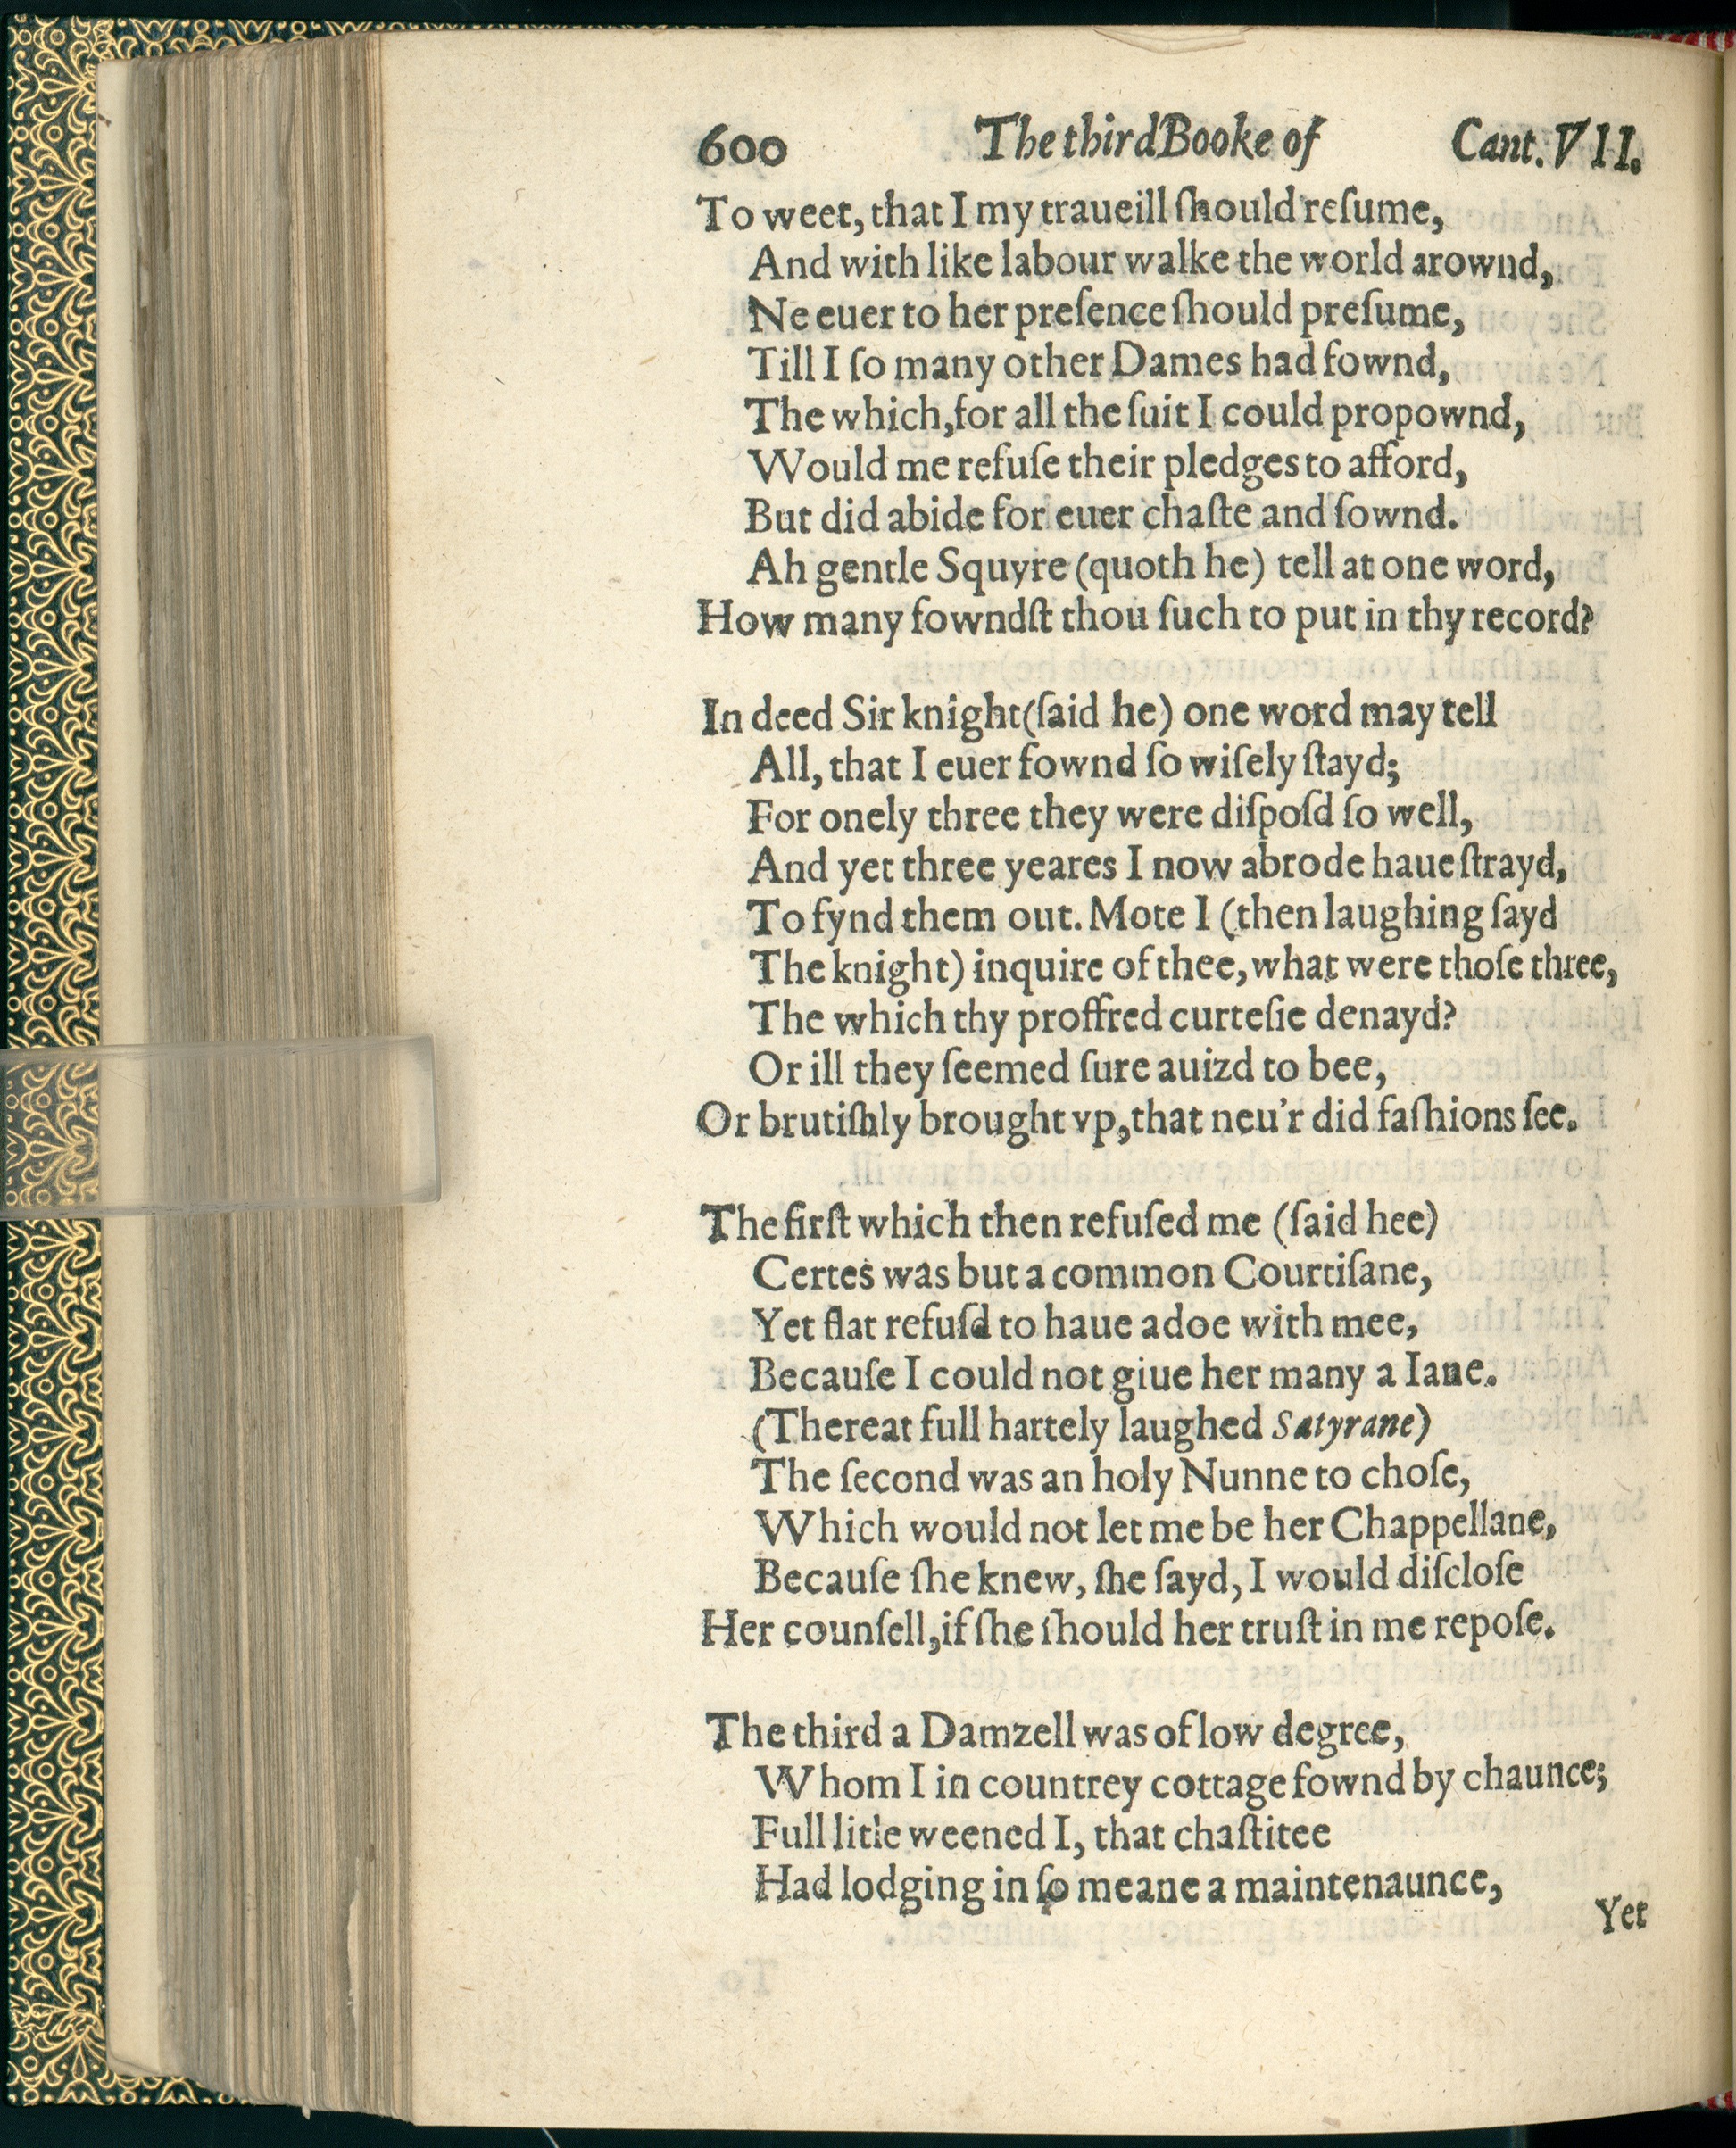 600 The third Booke of Cant. VII.
To weet, that I my traueill ſhould reſume,
And with like labour walke the world arownd,
Ne euer to her preſence ſhould preſume,
Till I ſo many other Dames had fownd,
The which, for all the ſuit I could propownd,
Would me refuſe their pledges to afford,
But did abide for euer chaſte and ſownd.
Ah gentle Squyre (quoth he) tell at one word,
How many fowndſt thou ſuch to put in thy record?
In deed Sir knight (ſaid he) one word may tell
All, that I euer fownd ſo wiſely ſtayd;
For onely three they were diſpoſd ſo well,
And yet three yeares I now abrode haue ſtrayd,
To fynd them out. Mote I (then laughing ſayd
The knight) inquire of thee, what were thoſe three,
The which thy proffred curteſie denayd?
Or ill they ſeemed ſure auizd to bee,
Or brutiſhly brought vp, that neu'r did faſhions ſee.
The firſt which then refuſed me (ſaid hee)
Certes was but a common Courtiſane,
Yet flat refuſd to haue adoe with mee,
Becauſe I could not giue her many a Iane.
(Thereat full hartely laughed Satyrane)
The ſecond was an holy Nunne to choſe,
Which would not let me be her Chappellane,
Becauſe ſhe knew, ſhe ſayd, I would diſcloſe
Her counſell, if ſhe ſhould her truſt in me repoſe.
The third a Damzell was of low degree,
Whom I in countrey cottage fownd by chaunce;
Full litle weened I, that chaſtitee
Had lodging in ſo meane a maintenaunce,
Yet